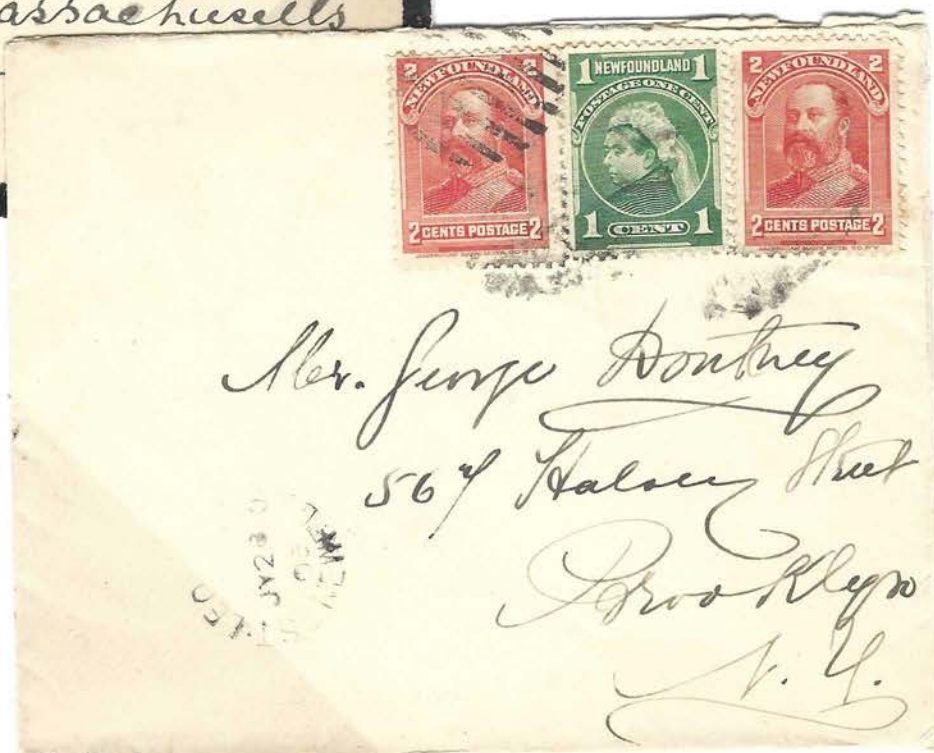 assachusetts
2 2
NEWFOUNDLAND
2 CENTS POSTAGE 2
1 NEWFOUNDLAND 1
POSTAGE ONE CENT
1 CENT 1
2 2
NEWFOUNDLAND
2 CENTS POSTAGE 2
Mr. George
567 Halsey Street
Brooklyn
N. Y.